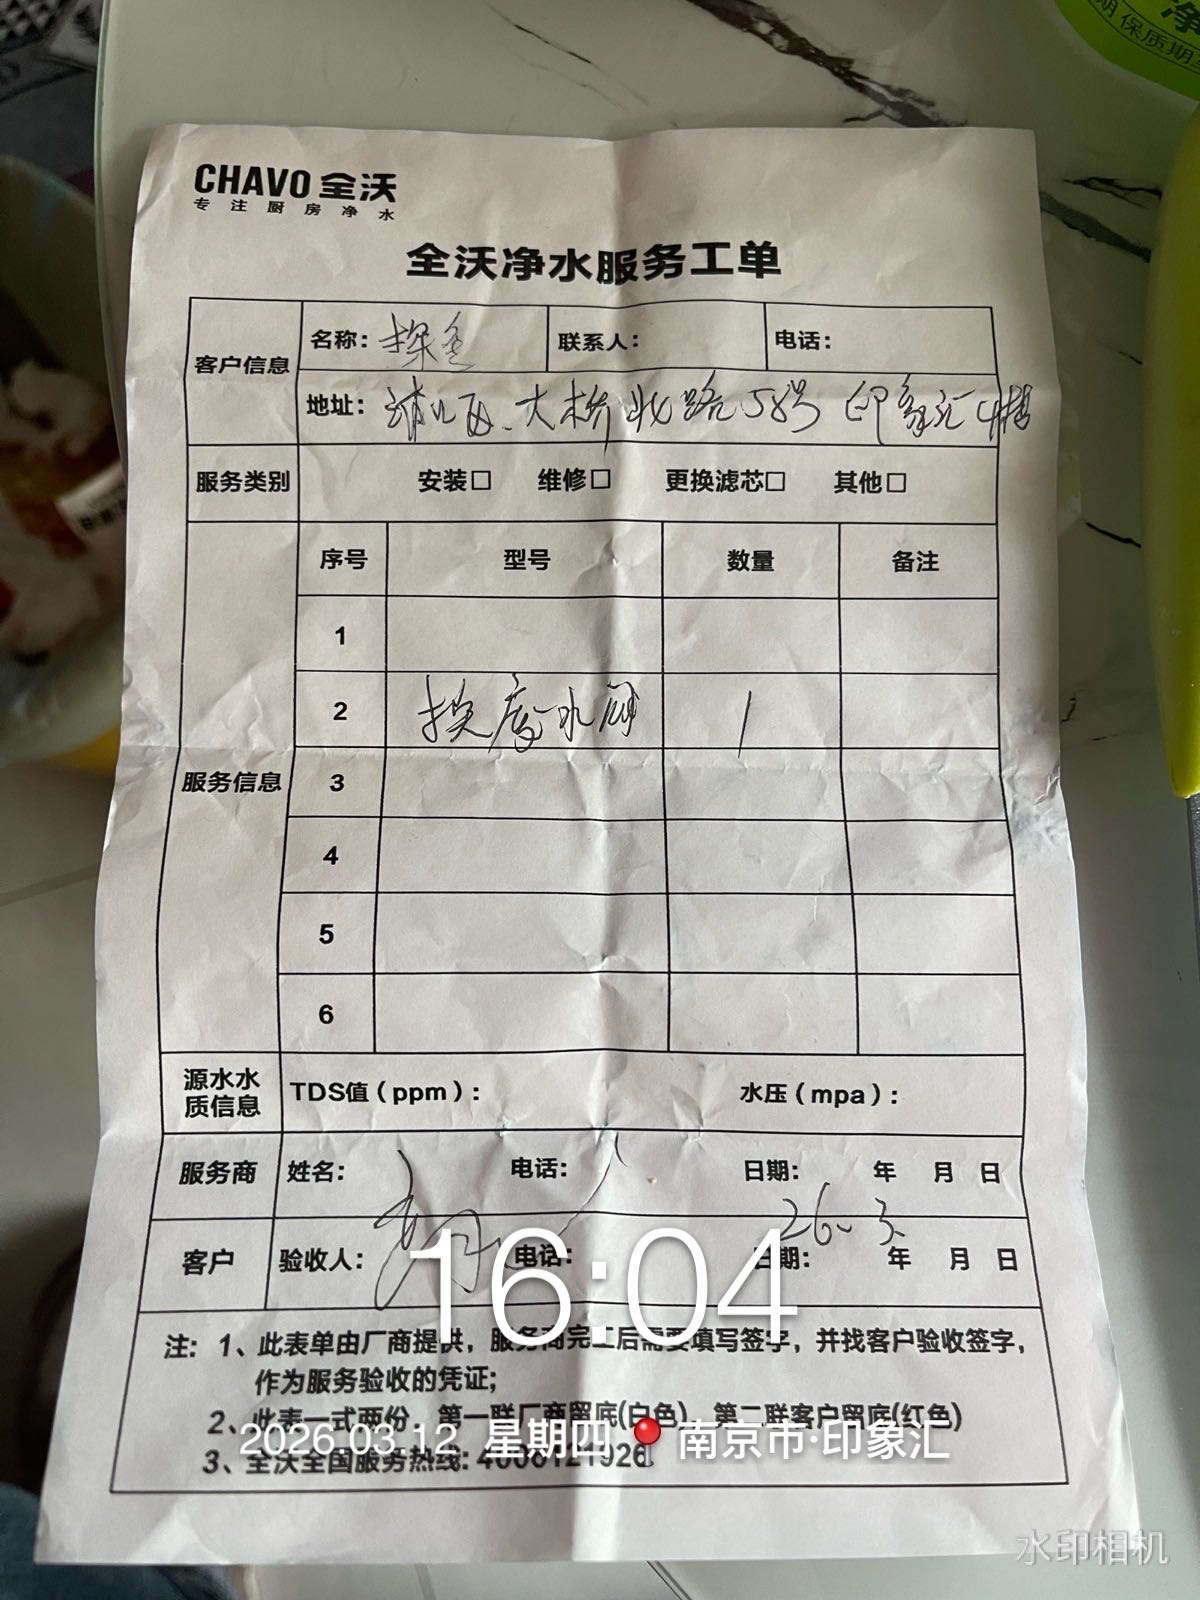 期 保质期至
净
CHAVO 全沃
专注厨房净水
全沃净水服务工单
客户信息 名称：探鱼 联系人： 电话：
地址：浦口区、大桥北路58号 印象汇4楼
服务类别 安装□ 维修□ 更换滤芯□ 其他□
服务信息
序号 型号 数量 备注
1
2 换废水阀 1
3
4
5
6
源水水质信息 TDS值（ppm）： 水压（mpa）：
服务商 姓名： 电话： 日期： 年 月 日
26. 3
客户 验收人： 电话： 日期： 年 月 日
16:04
注：1、此表单由厂商提供，服务商完工后需要填写签字，并找客户验收签字，
作为服务验收的凭证；
2、此表一式两份，第一联厂商留底(白色)，第二联客户留底(红色)
2026.03.12 星期四 南京市·印象汇
3、全沃全国服务热线：4008121926
水印相机